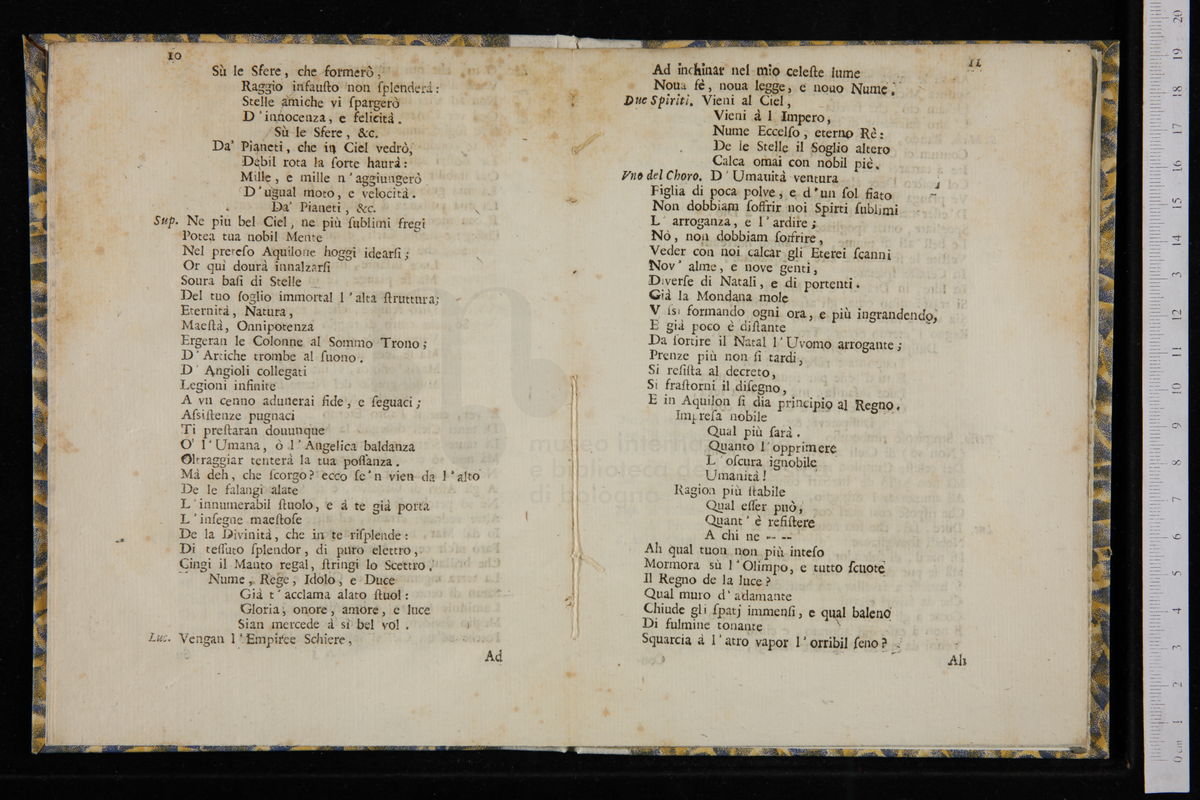 10
Sù le Sfere, che formerò,
Raggio infauſto non ſplenderá:
Stelle amiche vi ſpargerò
D'innocenza, e felicitá.
Sù le Sfere, &c.
Da' Pianeti, che in Ciel vedrò,
Debil rota la ſorte haurá:
Mille, e mille n'aggiungerò
D'ugual moto, e velocitá.
Da' Pianeti, &c.
Sup. Ne piu bel Ciel, ne più ſublimi fregi
Potea tua nobil Mente
Nel preteſo Aquilone hoggi idearſi;
Or qui dourà innalzarſi
Soura baſi di Stelle
Del tuo ſoglio immortal l'alta ſtruttura;
Eternitá, Natura,
Maeſtá, Onnipotenza
Ergeran le Colonne al Sommo Trono;
D'Artiche trombe al ſuono.
D' Angioli collegati
Legioni infinite
A vn cenno adunerai fide, e ſeguaci;
Aſsiſtenze pugnaci
Ti preſtaran douunque
O' l'Umana, ò l'Angelica baldanza
Oltraggiar tenterá la tua poſſanza.
Má deh, che ſcorgo? ecco ſe'n vien da l'alto
De le falangi alate
L'innumerabil ſtuolo, e á te giá porta
L'inſegne maeſtoſe
De la Divinitá, che in te riſplende:
Di teſſuto ſplendor, di puro elettro,
Cingi il Manto regal, ſtringi lo Scettro.
Nume, Rege, Idolo, e Duce
Giá t'acclama alato ſtuol:
Gloria, onore, amore, e luce
Sian mercede á si bel vol.
Luc. Vengan l'Empiree Schiere,
Ad
11
Ad inchinar nel mio celeſte lume
Noua fè, noua legge, e nouo Nume.
Due Spiriti. Vieni al Ciel,
Vieni á l Impero,
Nume Eccelſo, eterno Rè:
De le Stelle il Soglio altero
Calca omai con nobil piè.
Vno del Choro. D'Umanitá ventura
Figlia di poca polve, e d'un ſol fiato
Non dobbiam ſoffrir noi Spirti ſublimi
L' arroganza, e l'ardire;
Nò, non dobbiam ſoffrire,
Veder con noi calcar gli Eterei ſcanni
Nov' alme, e nove genti,
Diverſe di Natali, e di portenti.
Giá la Mondana mole
V ſsi formando ogni ora, e più ingrandendo,
E giá poco è diſtante
Da ſortire il Natal l'Uvomo arrogante;
Prenze più non ſi tardi,
Si reſiſta al decreto,
Si fraſtorni il diſegno,
E in Aquilon ſi dia principio al Regno.
Impreſa nobile
Qual più ſará.
Quanto l'opprimere
L' oſcura ignobile
Umanitá!
Ragion più ſtabile
Qual eſſer può,
Quant' è reſiſtere
A chi ne -- --
Ah qual tuon non più inteſo
Mormora sù l'Olimpo, e tutto ſcuote
Il Regno de la luce?
Qual muro d'adamante
Chiude gli ſpatj immenſi, e qual baleno
Di fulmine tonante
Squarcia á l'atro vapor l'orribil ſeno?
Ah